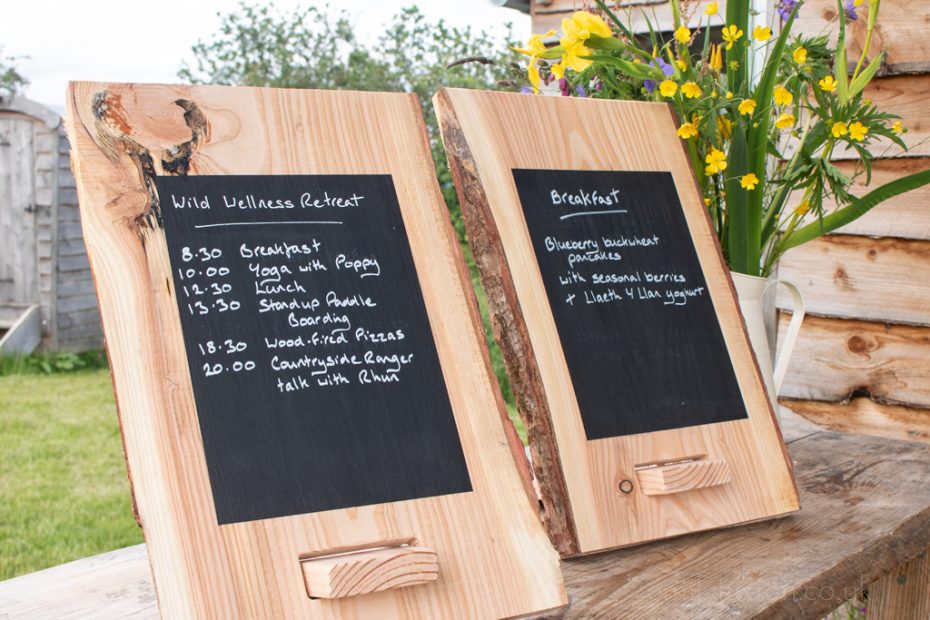 Wild Wellness Retreat
8.30 Breakfast
10.00 Yoga with Poppy
12.30 Lunch
13.30 Standup Paddle
Boarding
18.30 Wood-fired Pizzas
20.00 Countryside Ranger
talk with Rhun
Breakfast
Blueberry buckwheat
pancakes
with seasonal berries
+ Llaeth Y Llan yoghurt